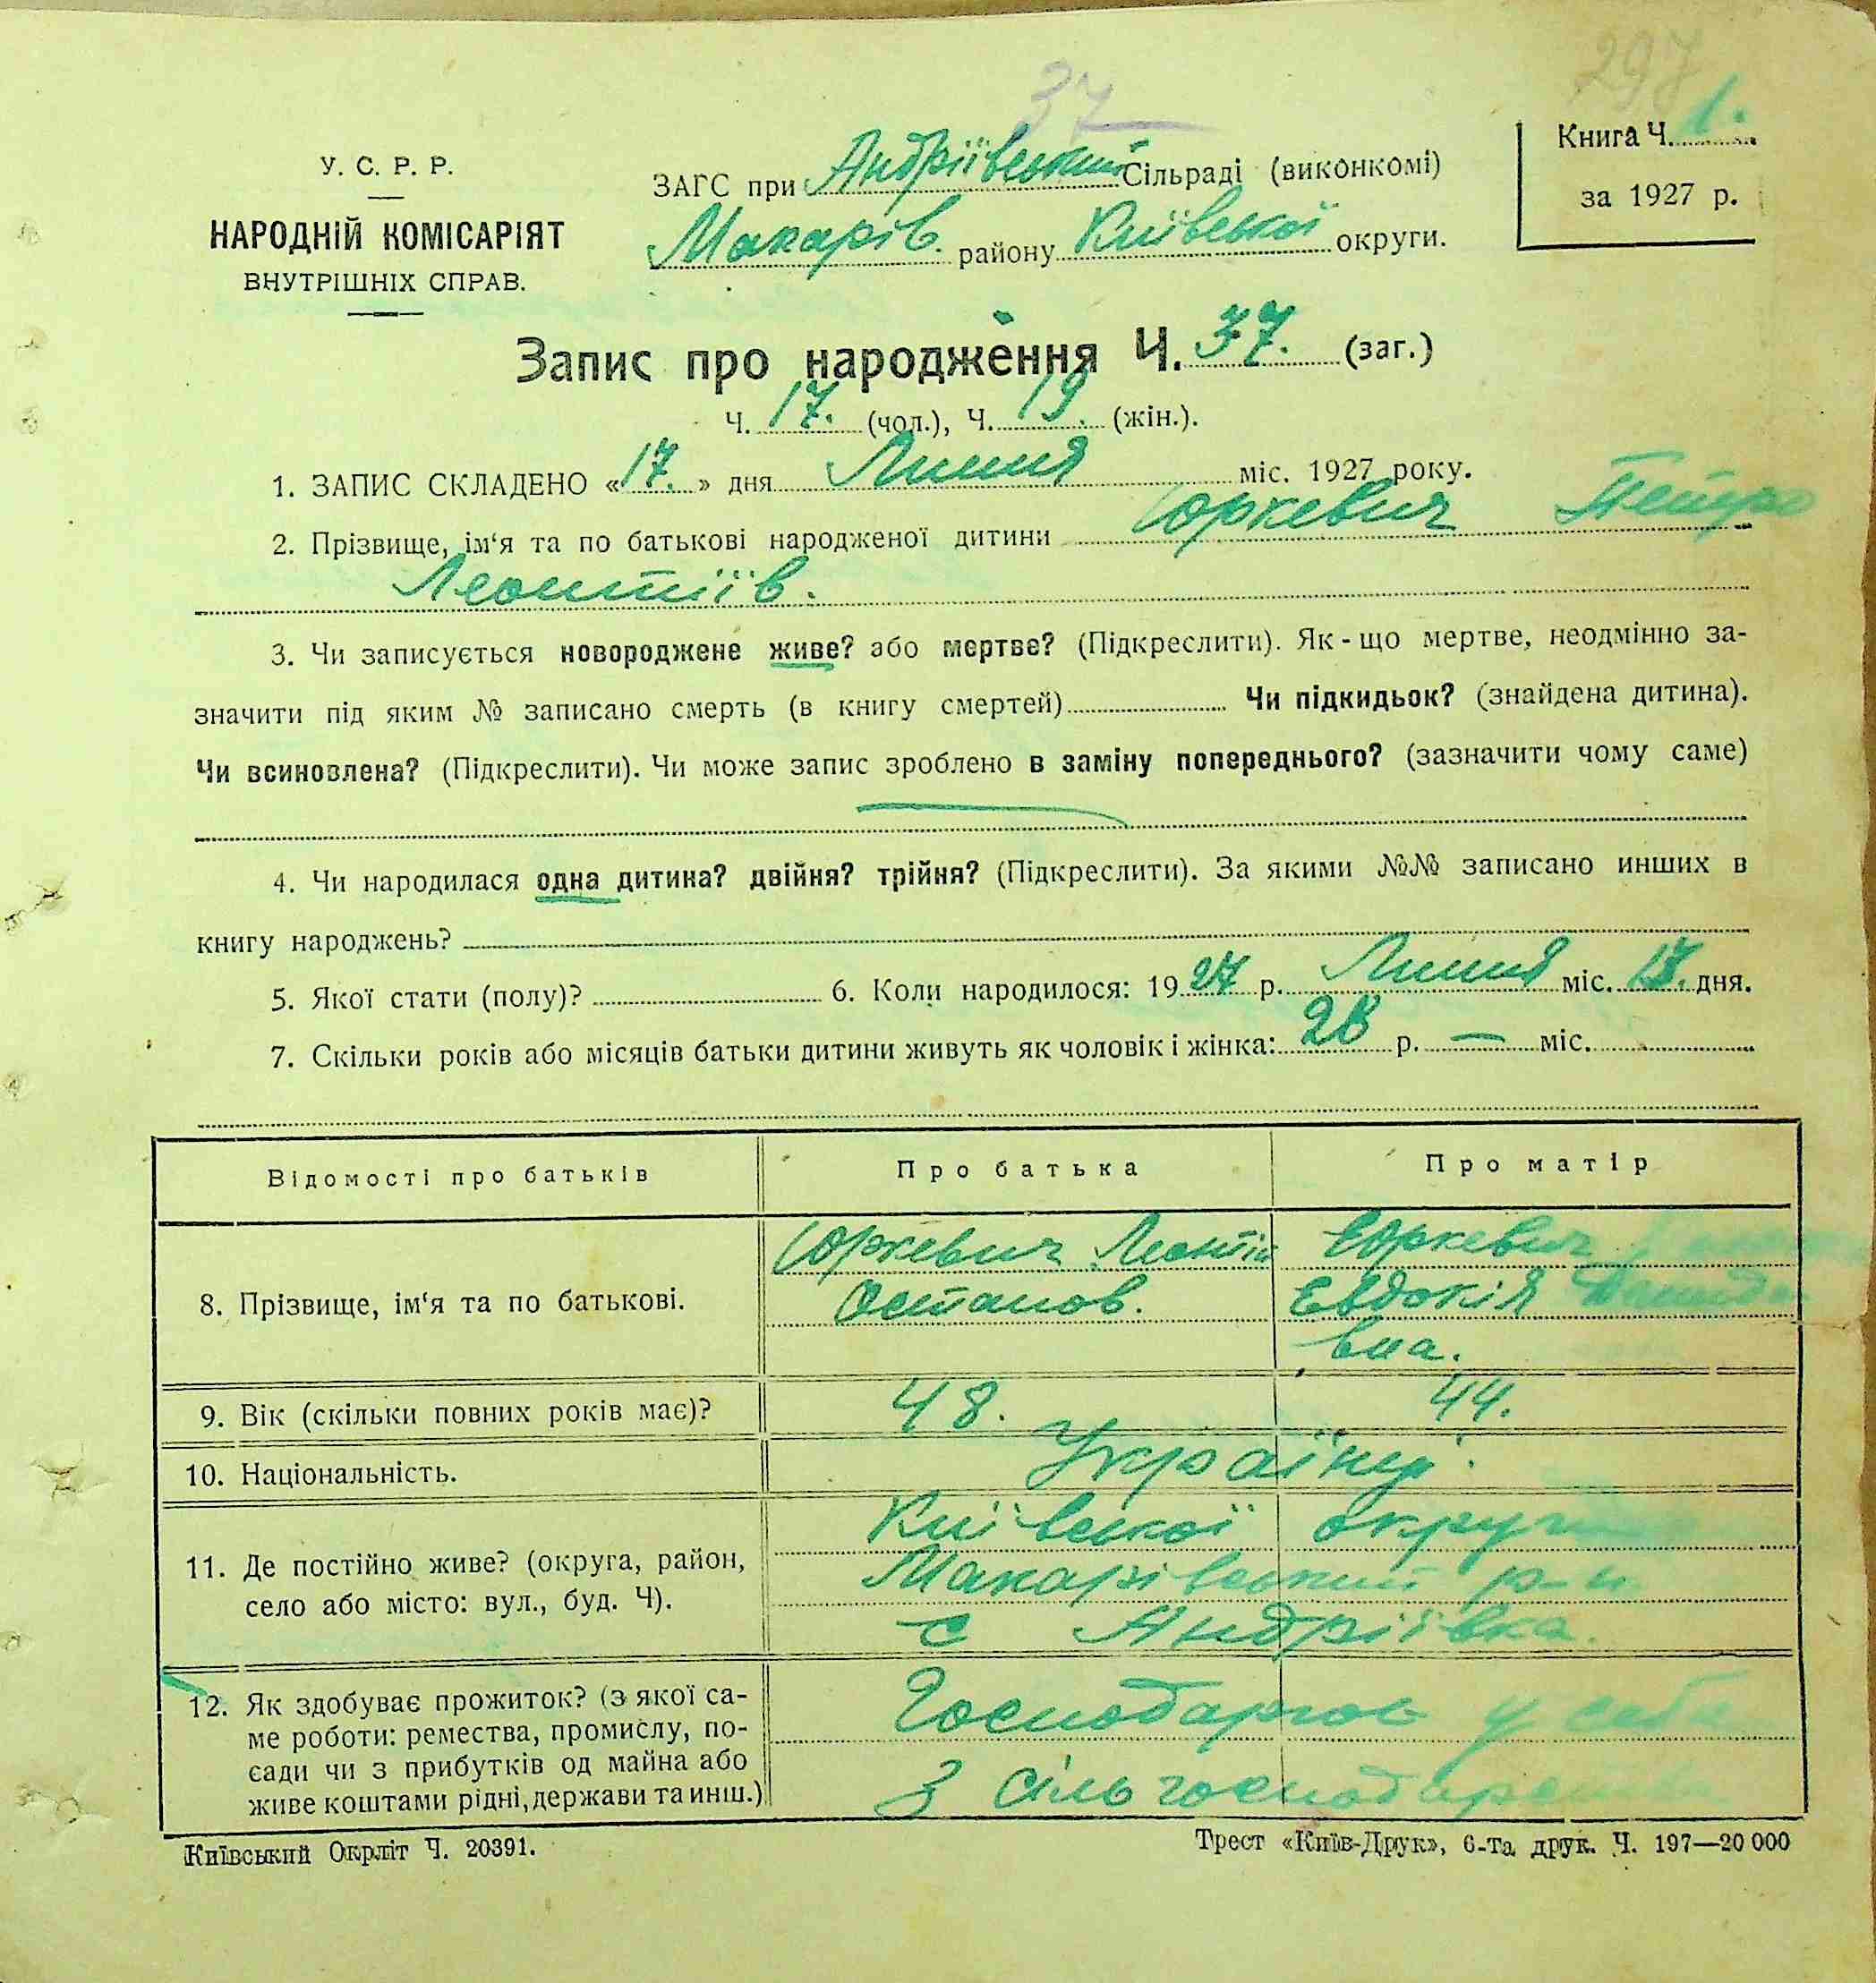 297
37
У. С. Р. Р.
НАРОДНІЙ КОМІСАРІЯТ
ВНУТРІШНІХ СПРАВ.
ЗАГС при Андріївський Сільраді (виконкомі)
Макарів. району Київської округи.
Книга Ч. 1.
за 1927 р.
Запис про народження Ч. 37. (заг.)
Ч. 17. (чол.), Ч. 19. (жін.).
1. ЗАПИС СКЛАДЕНО «17.» дня Липня міс. 1927 року.
2. Прізвище, ім‘я та по батькові народженої дитини Юркевич Петро
Леонтіїв.
3. Чи записується новороджене живе? або мертве? (Підкреслити). Як-що мертве, неодмінно за-
значити під яким № записано смерть (в книгу смертей) Чи підкидьок? (знайдена дитина).
Чи всиновлена? (Підкреслити). Чи може запис зроблено в заміну попереднього? (зазначити чому саме)
4. Чи народилася одна дитина? двійня? трійня? (Підкреслити). За якими №№ записано инших в
книгу народжень?
5. Якої стати (полу)? 6. Коли народилося: 1927 р. Липня міс. дня.
7. Скільки років або місяців батьки дитини живуть як чоловік і жінка: 28 р. — міс.
Відомості про батьків Про батька Про матір
8. Прізвище, ім‘я та по батькові.
Юркевич Леонтій
Остапов.
Юркевич
Евдокія
вна.
9. Вік (скільки повних років має)? 48. 44.
10. Національність. Українці.
11. Де постійно живе? (округа, район,
село або місто: вул., буд. Ч).
Київської округи
Макарівський р-н.
с Андріївка.
12. Як здобуває прожиток? (з якої са-
ме роботи: ремества, промислу, по-
сади чи з прибутків од майна або
живе коштами рідні, держави та инш.)
Господарює у себе
З сільгосподарства
Київський Окрліт Ч. 20391.
Трест «Київ-Друк», 6-та друк. Ч. 197—20 000